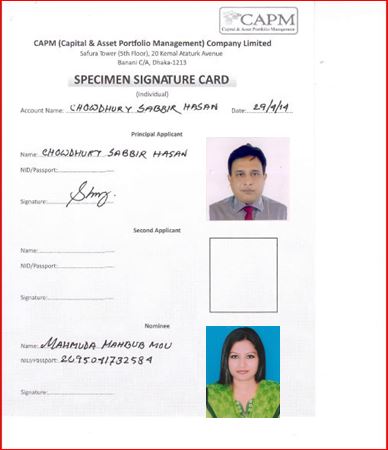 CAPM
Capital & Asset Portfolio Management
CAPM (Capital & Asset Portfolio Management) Company Limited
Safura Tower (5th Floor), 20 Kemal Ataturk Avenue
Banani C/A, Dhaka-1213
SPECIMEN SIGNATURE CARD
(Individual)
Account Name: CHOWDHURY SABBIR HASAN Date: 29/9/14
Principal Applicant
Name: CHOWDHURY SABBIR HASAN
NID/Passport:
Signature:
Second Applicant
Name:
NID/Passport:
Signature:
Nominee
Name: MAHMUDA MAHBUB MOU
NID/Passport: 2695041732584
Signature: